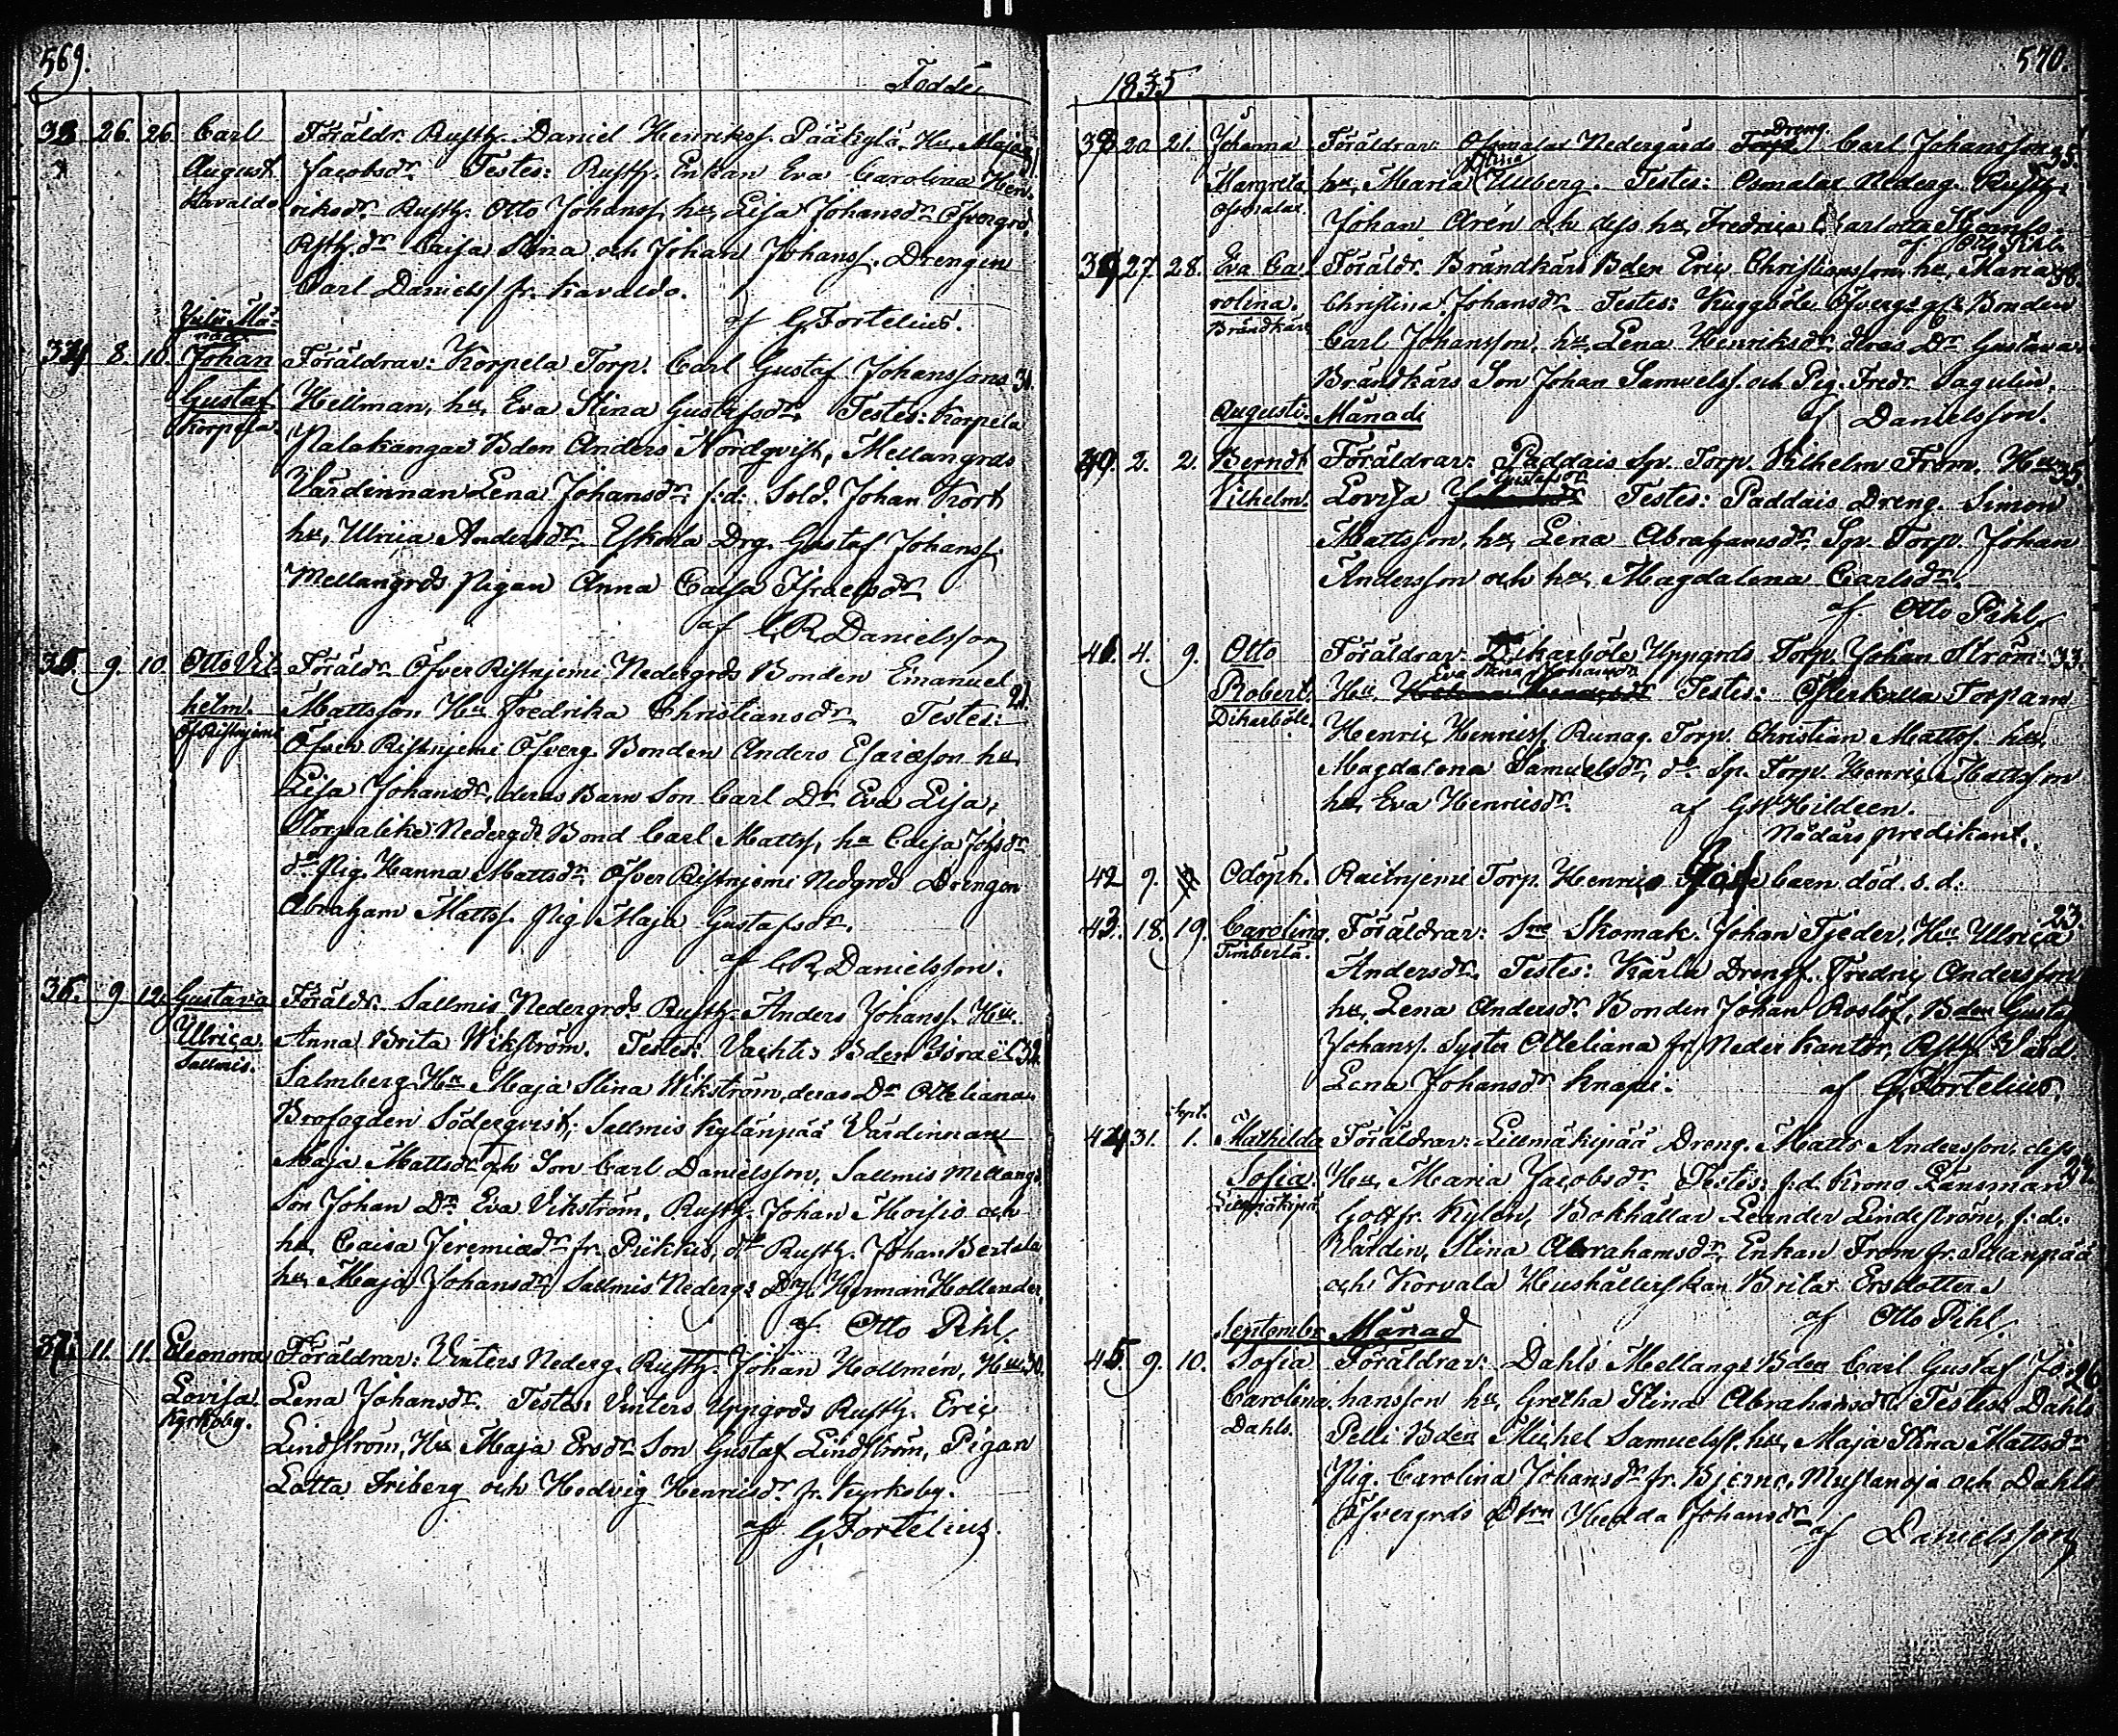 569.
Födde
33. 26. 26. Carl Föräldr. Rusth. Daniel Henrikss. Pääkylä. Hu. Maja
August Jacobsdr. Testes: Rusth. Enkan Eva Carolina Hen-
Kavaldo riksdr. Rusth. Otto Johanss. hu. Lisa Johansdr Öfvergrd.
Rsth. dr Caisa Stina och Johan Johanss. Drengen
Carl Danielss. fr. Kavaldo.
af G. Fortelius.
Julii Må-
nad
34. 8. 10. Johan Föräldrar: Korpela Torp. Carl Gustaf Johansson 31.
Gustaf Hellman, hu. Eva Stina Gustafsdr. Testes: Korpela
Korpela. Palokangas Bden Anders Nordqvist, Mellangrds
Värdinnan Lena Johansdr. f:d: Sold. Johan Kort
hu, Ulrica Andersdr. Eskola Drg. Gustaf Johanss.
Mellangrds Pigan Anna Caisa Israelsdr
af C. R. Danielsson
35. 9. 10. Otto Vil- Föräldr. Öfver Ristniemi Nedergrds Bonden Emanuel
helm. Mattsson Hu Fredrika Christiansdr Testes: 21.
Öf. Ristniemi Öfver Ristnjemi Öfverg. Bonden Anders Esaiesson hu.
Lisa Johansdr, deras Barn Son Carl Dr Eva Lisa,
Nedergds Bond Carl Matts. hu Caisa Johsdr
do Pig. Hanna Mattsdr. Öfver Ristnjemi Nedgrds Drengen
Abraham Matts. Pig Maja Gustafsdr.
af C. R. Danielsson.
36. 9. 12. Gustava Föräldr. Sallmis Nedergrds Rusth. Anders Johanss. Hu.
Ulrica. Anna Brita Wikström. Testes: Vachtis Bden Israël 32.
Sallmis. Salmberg Hu Maja Stina Wikström, deras Dr Otteliana.
Brofogden Söderqvist, Sallmis Kylänpää Värdinnan
Maja Mattsdr och Son Carl Danielsson, Sallmis Mellang.
Son Johan Dr. Eva Vikström, Rusth. Johan Moisio och
hu. Caisa Jeremiædr fr. Piikkis, do Rusth. Johan Bertala
hu. Maja Johansdr Sallmis Nederg. Dr. Herman Hollender.
af Otto Pihl.
37. 11. 11. Eleonora Föräldrar: Vinters Nederg. Rusth. Johan Hollmén, Hu 30.
Lovisa. Lena Johansdr. Testes: Vinters Uppgrds Rusth. Eric
Kyrkoby. Lindström, Hu Maja Ersdr Son Gustaf Lindström, Pigan
Lotta Friberg och Hedvig Henricsdr. fr. Kyrkoby.
af G. Fortelius.
570.
1835
38 20. 21. Johanna Föräldrar: Osmalax Nedergårds Dreng. Carl Johansson 35.
Margreta hu, Maria Ullberg. Testes: Osmalax Nederg. Rusth.
Osmalax. Johan Arén och dess hu, Fredrica Charlotta
af Otto Pihl.
39 27. 28. Eva Ca- Föräldr. Brändkärs Bden Eric Christiansson, hu. Maria 38.
rolina. Christina Johansdr Testes: Kuggböle Öfvergs Bonden
Brändkärs Carl Johansson, hu, Lena Henriksdr deras Dr Gustava.
Brändkärs Son Johan Samuelss. och Pig. Fredr. Sagulin.
af Danielsson.
Augusti. Månad
40. 2. 2. Berndt Föräldrar: Paddais Sp. Torp. Vilhelm From, Hu 35
Vilhelm. Lovisa Gustafsdr Testes: Paddais Dreng. Simon
Mattsson, hu, Lena Abrahamsdr. Sp. Torp. Johan
Andersson och hu, Magdalena Carlsdr.
af Otto Pihl
41. 4. 9. Otto Föräldrar: Dikarböle Uppgrds Torp. Johan Ström: 33.
Robert. Hu Eva Stina Johansdr Testes: Torparn
Dikarböle. Henric Henricss. Runag. Torp. Christian Matts. hu,
Magdalena Samuelsdr, do Sp. Torp. Henric Mattsson
hu, Eva Henricsdr. af Hildeen.
Nådårs predikant.
42 9. Odöph. Raitnjemi Torp. Henric barn död. s. d:
43. 18. 19. Carolina. Föräldrar: Sne Skomak. Johan Tjeder, Hu Ullrica 23.
Timberla. Andersdr. Testes: Kärla Drengs. Fredric Andersson
hu, Lena Andersdr. Bonden Johan Roslöf, Bden Gustaf
Johanss. Syster Otteliana fr. Neder Kantor, Rsth. Värd.
Lena Johansdr Knapi. af G. Fortelius.
44 31. Sept. 1. Mathilda Föräldrar: Lillmäkipää Dreng. Matts Andersson, dess
Sofia. Hu, Maria Jacobsdr Testes: f.d. Krono Länsman 24.
Lillmäkipä Gottfr. Kylen, Bokhållar Leander Lindström, f:d:
Värdin, Stina Abrahamsdr, Enkan From fr.
och Korvala Hushållerskan Brita Ersdotter.
af Otto Pihl.
September Månad
45. 9. 10. Sofia Föräldrar: Dahls Mellangs Bden Carl Gustaf Jo- 26
Carolina. hansson hu, Gretha Stina Abrahamsdr Testes: Dahls
Dahls. Pelli Bden Michel Samuelss. hu, Maja Stina Mattsdr
Pig. Carolina Johansdr fr. Bjerno, Mustanoja och Dahls
Öfvergrds Dtrn Hedda Johansdr
af Danielsson